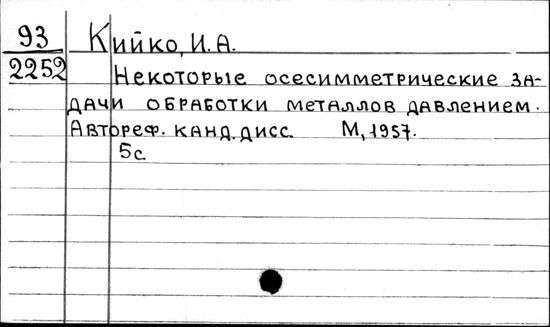 93 Кийко, И.А.
2252 Некоторые осесимметрические за-
дачи обработки металлов давлением.
Автореф. канд. дисс. М, 1957.
5с